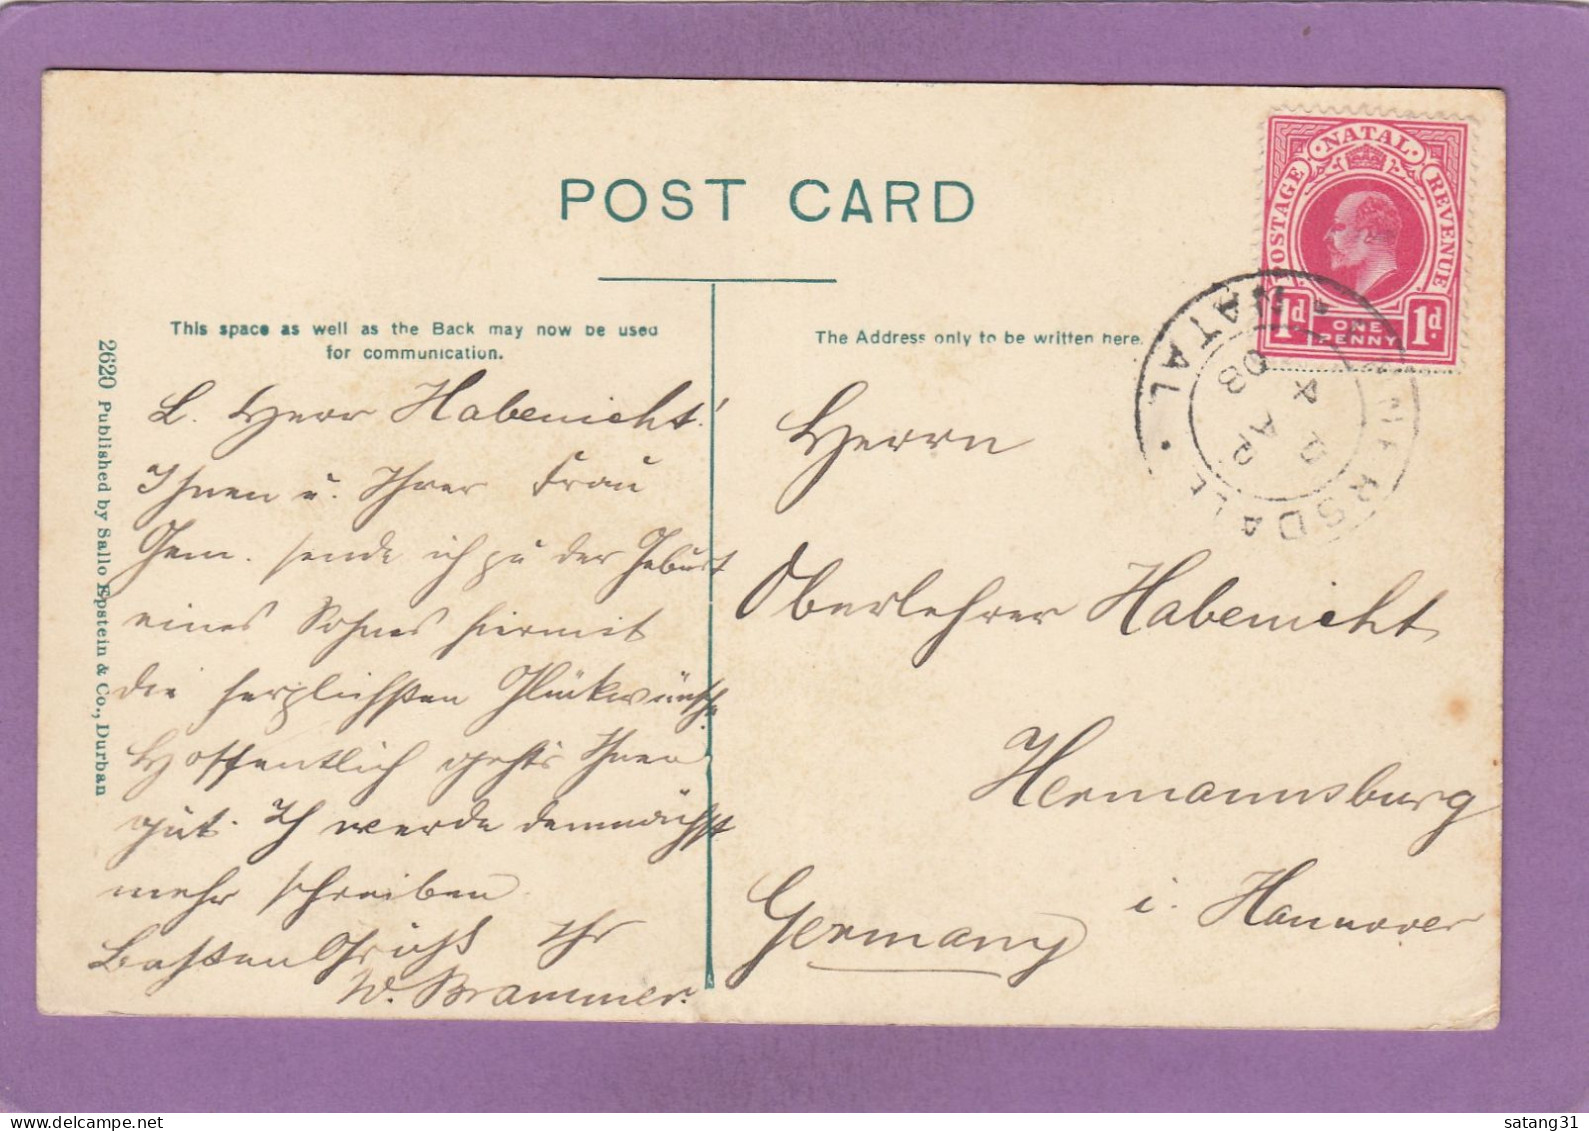 POST CARD
This space as well as the Back may now be used
for communication.
The Address only to be written here.
2620 Published by Sallo Epstein & Co., Durban
L. Herr Habenicht!
Ihnen u. Ihrer Frau
Gem. sende ich zu der Geburt
eines Sohnes hiermit
die herzlichsten Glückwünsche
Hoffentlich geht's Ihnen
gut. Ich werde demnächst
mehr schreiben.
Besten Gruß Ihr
W. Brammer.
Herrn
Oberlehrer Habenicht
Hermannsburg
i. Hannover
Germany
NATAL
POSTAGE
REVENUE
1d ONE PENNY 1d.
NATAL
AP
08
delcampe.net
satang31